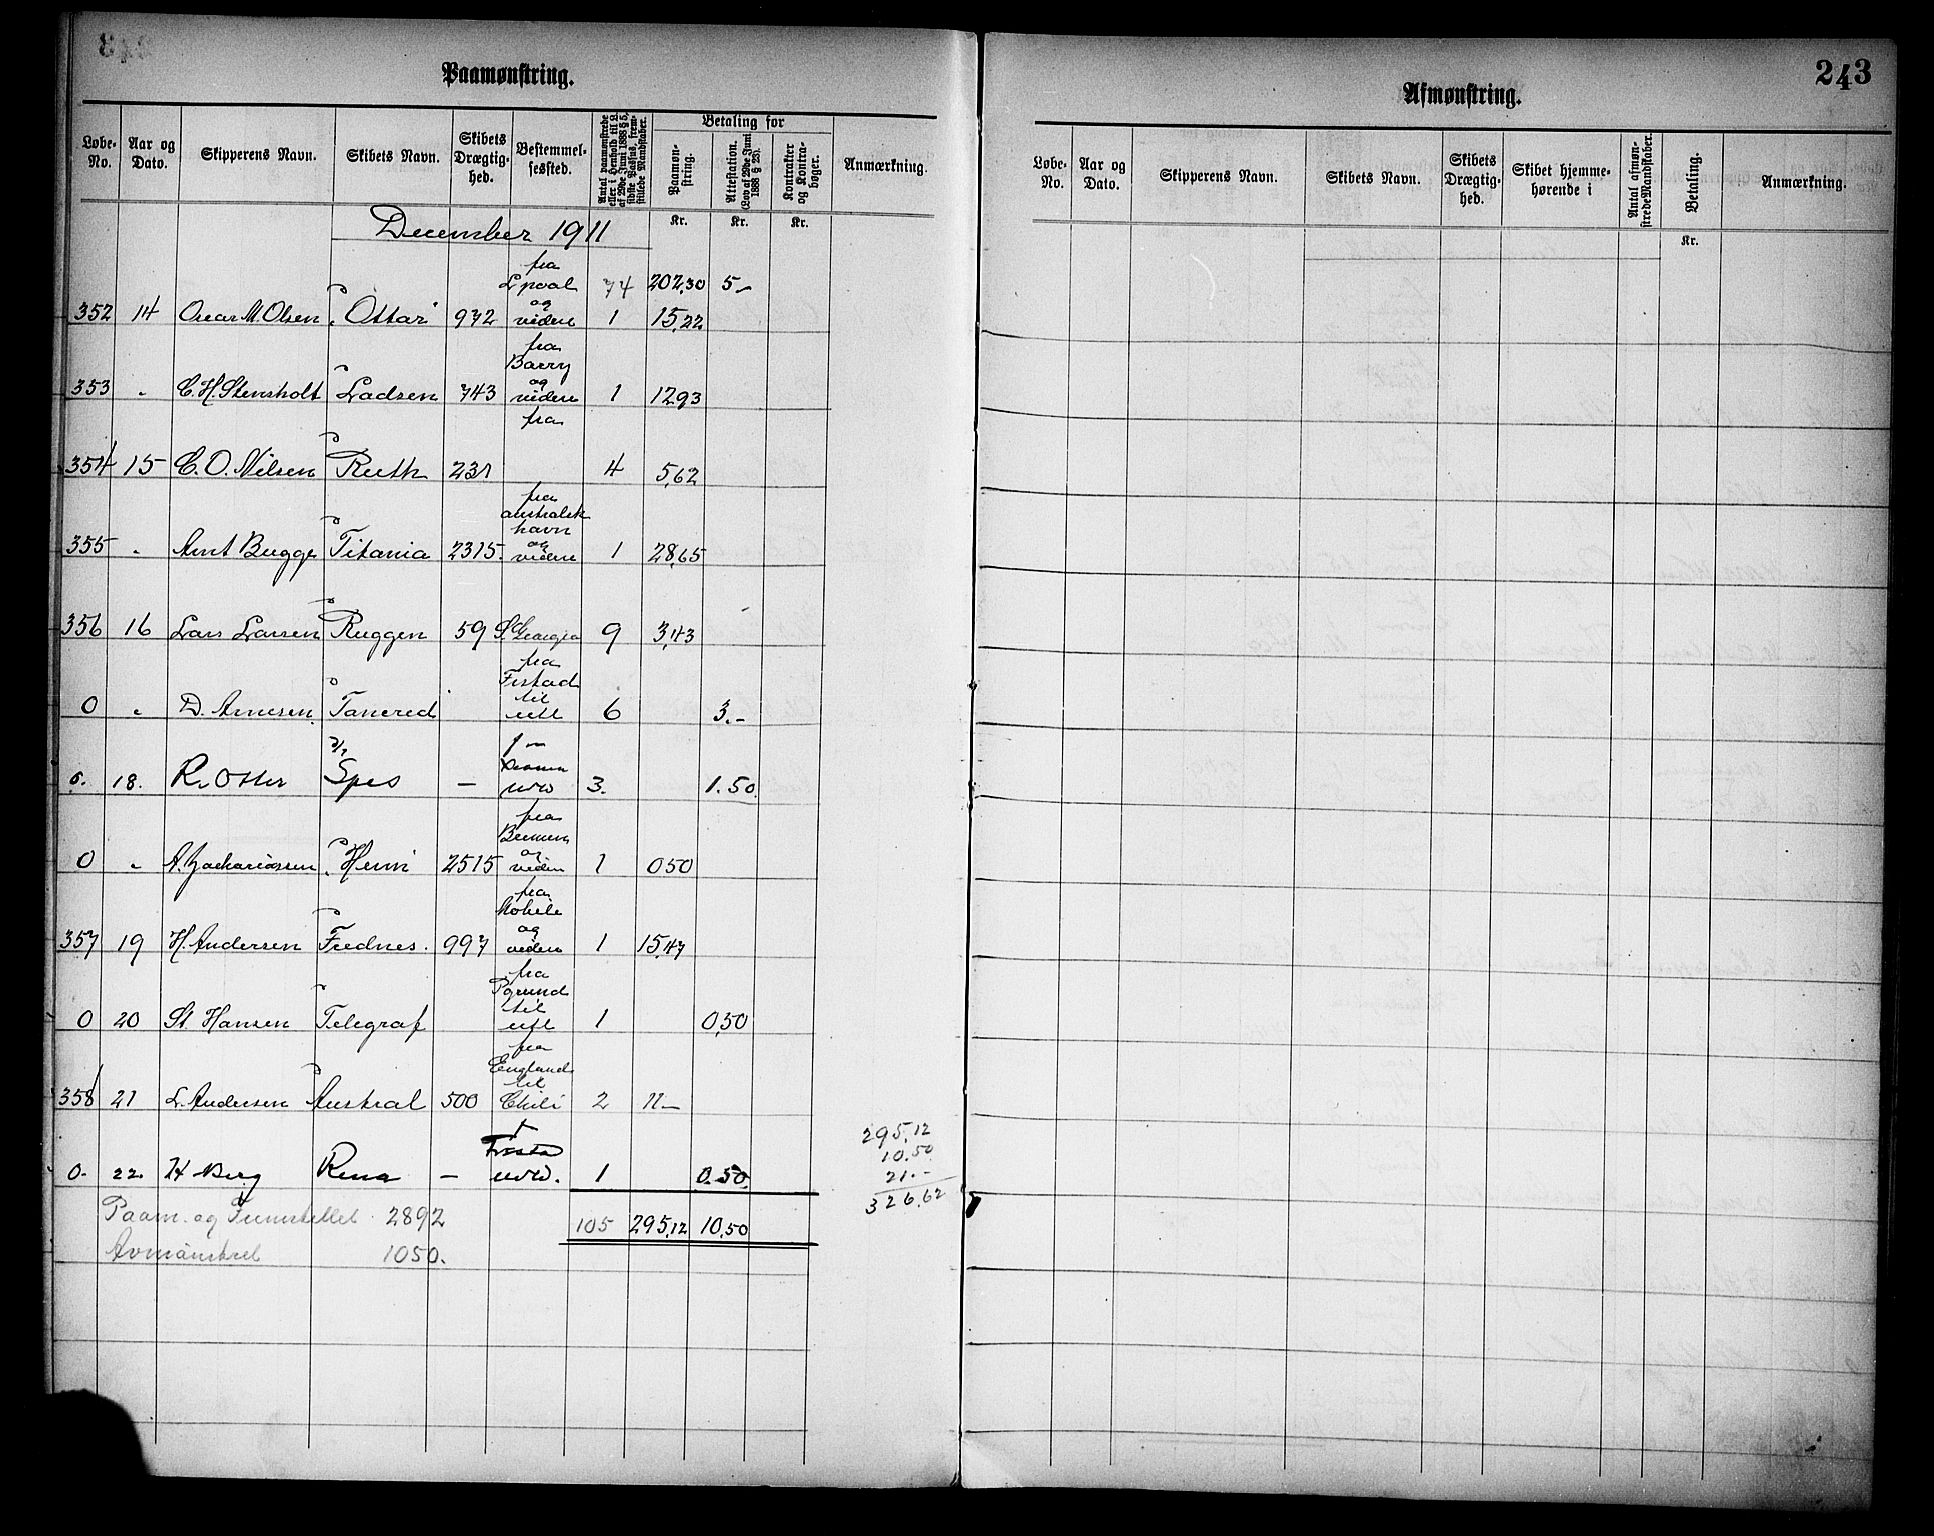 Paamønstring.
Løbe-No. Aar og Dato. Skipperens Navn. Skibets Navn. Skibets Drægtighed. Bestemmelsessted. Antal paamønstrede eller i Henhold til L. af 29de Juni 1888 § 5, sidste Passus, fremstillede Mandskaber. Betaling for Paamønstring. Attestation. (Lov af 29de Juni 1888 § 25). Kontrakter og Kontrabøger. Anmærkning.
Kr. Kr. Kr.
December 1911
fra
Lpool 74 202,30 5-
og
352 14 Oscar M. Olsen "Ottar" 972 videre 1 15,22
fra
Barry
og
353 " C. H. Stensholt Ladsen 743 videre 1 12,93
fra
354 15 C. O. Nilsen Ruth 231 4 5,62
fra
australsk
havn
og
355 " Arnt Bugge Titania 2315. videre 1 28,65
356 16 Lars Larsen Ruggen 59 S. Georgia 9 3,43
fra
Frstad
til
0 " D. Arnesen Tancred uttl 6 3.-
0. 18. R. Otter Spes — udw 3. 1.50.
fra
Bremen
og
0 " A. Zachariassen 2515 videre 1 0 50
fra
Mobile
og
357 19 H. Andersen 997 videre 1 15,47
fra
Pgrund
til
0 20 St Hansen Telegraf uttl 1 0,50
fra
England
til
358 21 L. Andersen Austral 500 Chili 2 11—
0. 22. H Berg Rena — udw. 1 0.50.
295.12
10.50
21.-
326.62
Paam. og Fremstillet 2892 105 295,12 10,50
Avmönstret 1050.
243
Afmønstring.
Løbe-No. Aar og Dato. Skipperens Navn. Skibets Navn. Skibets Drægtighed. Skibet hjemmehørende i Antal afmønstrede Mandskaber. Betaling. Anmærkning.
Kr.